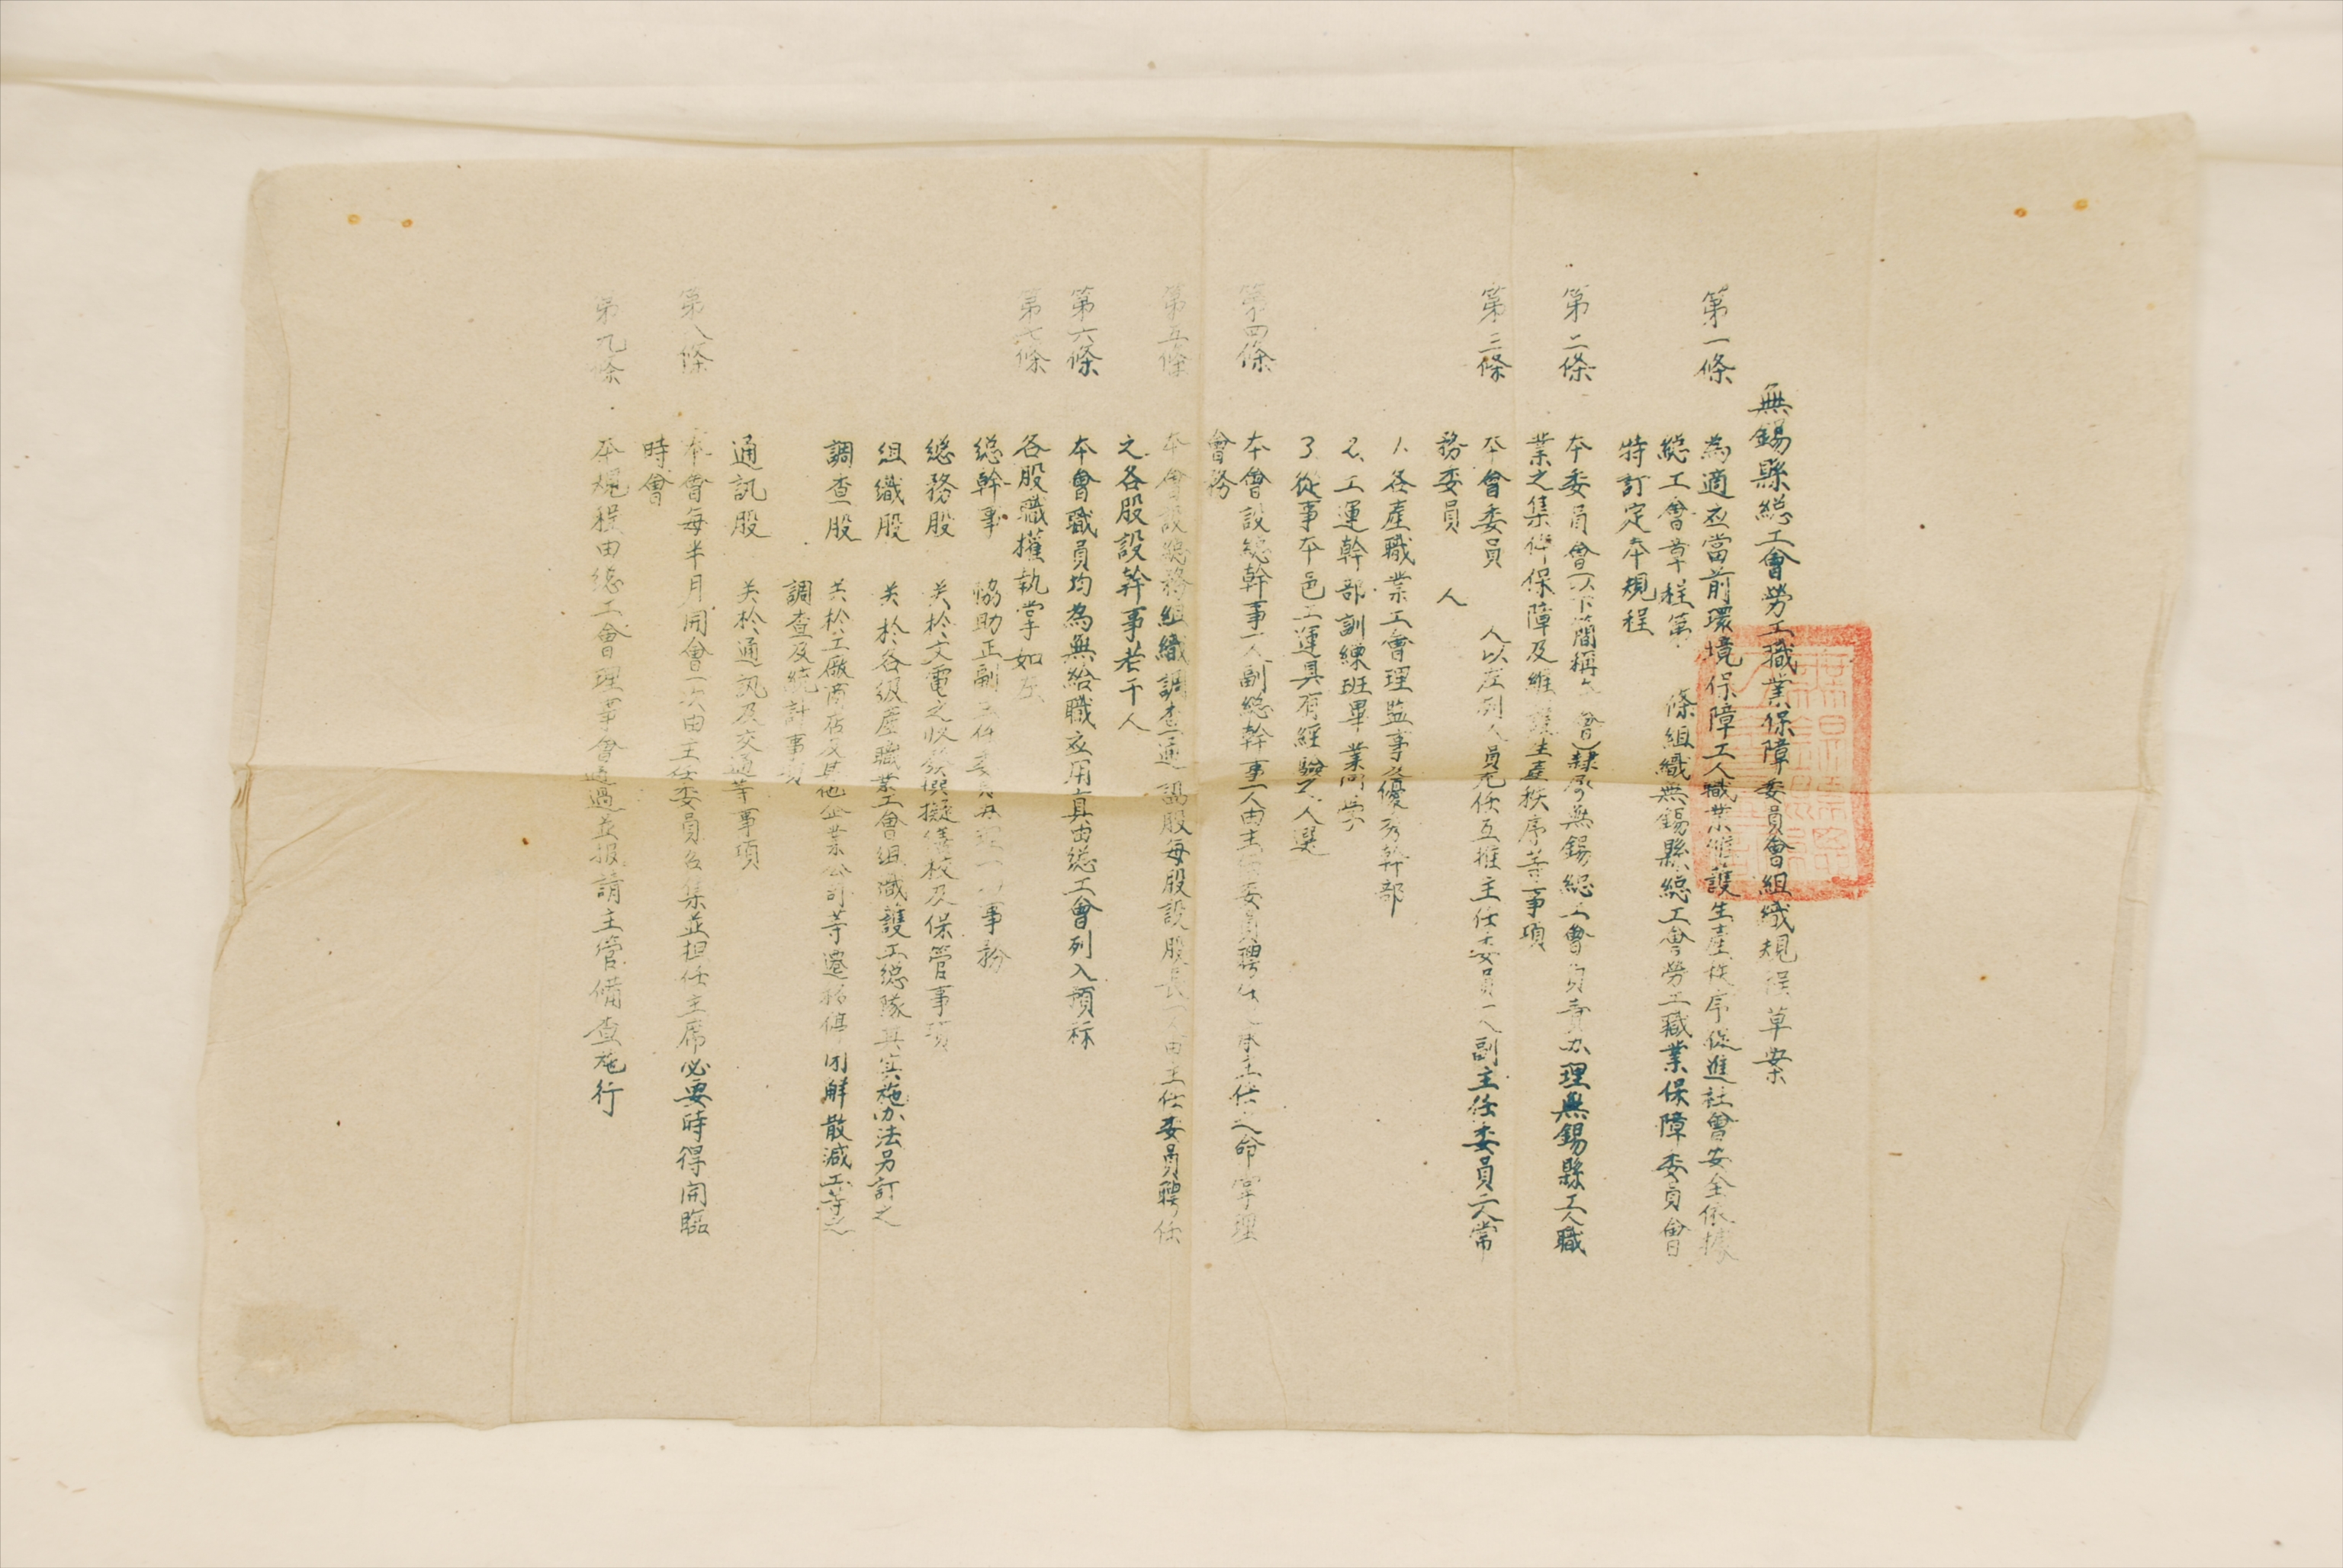 無錫縣総工會勞工職業保障委員會組織規程草案
第一條 為適应當前環境保障工人職業維護生產秩序促進社會安全依據
総工會章程第 條組織無錫縣総工會勞工職業保障委員會
特訂定本規程
第二條 本委員會(以下簡稱 會)隸屬無錫総工會負責办理無錫縣工人職
業之集体保障及維護生產秩序等事項
第三條 本會委員 人以左列人員充任互推主任委員一人副主任委員二人常
務委員 人
1. 各產職業工會理监事及優秀幹部
2. 工運幹部訓練班畢業同学
3. 從事本邑工運具有經驗之人選
第四條 本會設総幹事一人副総幹事一人由主任委員聘任承主任之命掌理
會務
第五條 本會設総務組織調查通訊股每股設股長一人由主任委員聘任
之各股設幹事若干人
第六條 本會職員均為無給職应用真由総工會列入預标
第七條 各股職權執掌如左
総幹事 協助正副主任委員办理一切事務
総務股 关於文電之收發撰擬繕校及保管事項
組織股 关於各级產職業工會組織護工総隊其实施办法另訂之
調查股 关於工廠商店及其他企業公司等遷移停闭解散減工等之
調查及統計事項
通訊股 关於通訊及交通等事項
第八條 本會每半月開會一次由主任委員召集並担任主席必要時得開臨
時會
第九條 本規程由総工會理事會通過並报請主管備查施行